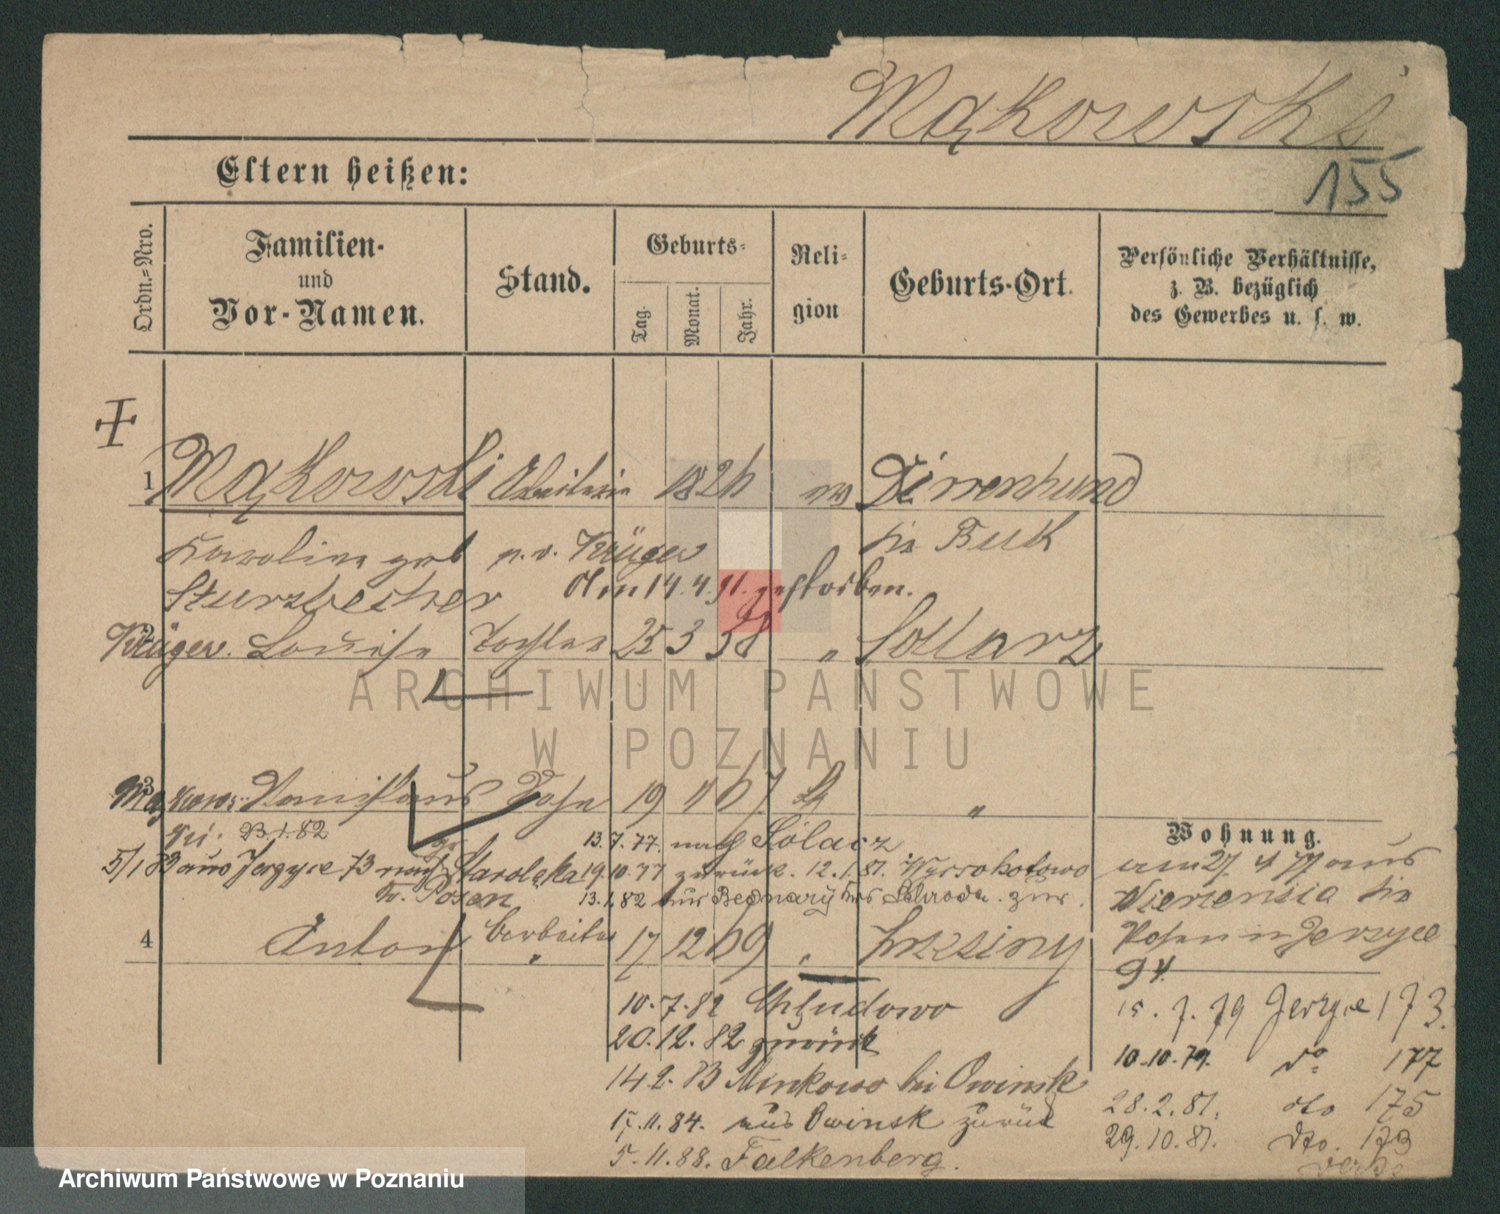 Mąkowski
155
Eltern heißen:
Ordn.-Nro.
Familien-
und
Vor-Namen.
Stand.
Geburts-
Tag.
Monat.
Jahr.
Reli-
gion
Geburts-Ort.
Persönliche Verhältnisse,
z. B. bezüglich
des Gewerbes u. s. w.
1 Mąkowski Arbeiterin 182
Karoline geb p. v. Krüger bei Buk
Sturzbecher den 14.4.91. gestorben.
Krüger. Louise Tochter 25 3 58 " Sollarz
ARCHIWUM PAŃSTWOWE
W POZNANIU
3 Stanislaus Sohn 19 4 67 "
23.1.82 13.7.77. nach Sólacz
Wohnung.
5/1 83 aus Jerzyce 73 nach Starolęka 19.10.77 zurück. 12.1.81. Wyssokotowo
am 27 4 77 aus
Kr. Posen 13.1.82 aus Bednary Krs Schroda. zur.
4 Anton 17 12 69 "
Posen in Jerzyce
94.
10.7.82 Chludowo
15.7.79 Jerzyce 173.
20.12.82 zurück
10.10.79. do 177
14 2. 83 Minkowo bei Owinsk
28.2.81. dto 175
17.11.84. aus Owinsk zurück
29.10.81. dto. 173
5.11.88. Falkenberg.
Archiwum Państwowe w Poznaniu